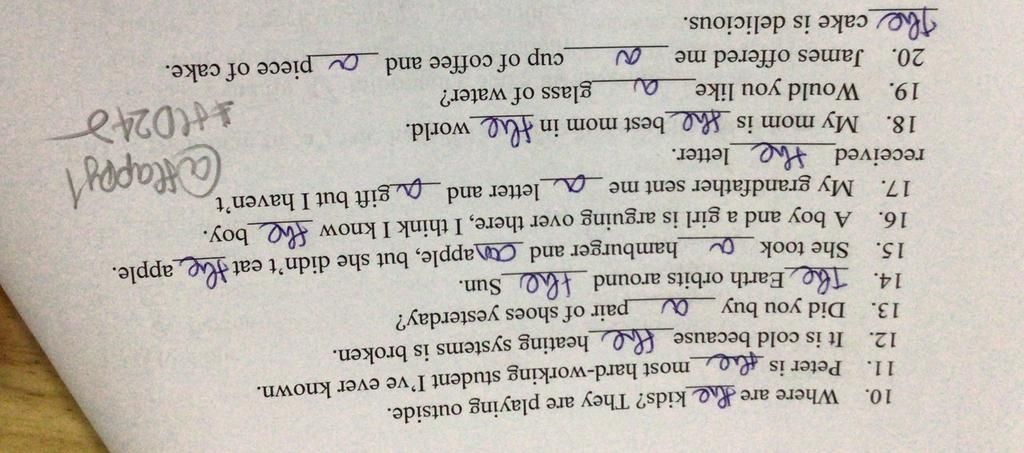 10. Where are the kids? They are playing outside.
11. Peter is the most hard-working student I've ever known.
12. It is cold because the heating systems is broken.
13. Did you buy a pair of shoes yesterday?
14. The Earth orbits around the Sun.
15. She took a hamburger and an apple, but she didn't eat the apple.
16. A boy and a girl is arguing over there, I think I know the boy.
17. My grandfather sent me a letter and a gift but I haven't
received the letter.
18. My mom is the best mom in the world.
19. Would you like a glass of water?
20. James offered me a cup of coffee and a piece of cake.
The cake is delicious.
@Happy1